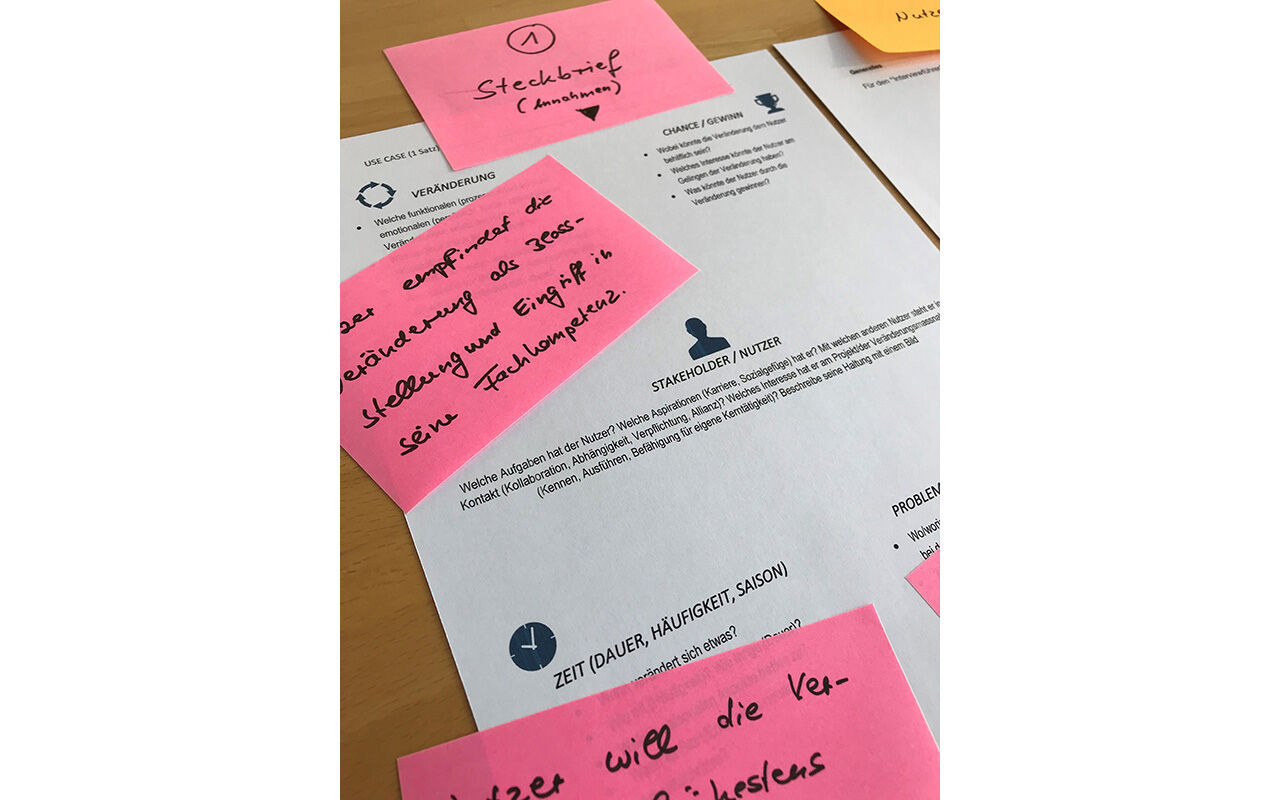 1
Steckbrief
(Annahmen)
Nutze
Generelles
Für den "Interviewführer
USE CASE (1 Satz)
CHANCE / GEWINN
Wobei könnte die Veränderung dem Nutzer
behilflich sein?
Welches Interesse könnte der Nutzer am
Gelingen der Veränderung haben?
Was könnte der Nutzer durch die
Veränderung gewinnen?
VERÄNDERUNG
Welche funktionalen (proze
emotionalen (per
Veränd
zer empfindet die
Veränderung als Bloss-
stellung und Eingriff in
seine Fachkompetenz.
STAKEHOLDER / NUTZER
Welche Aufgaben hat der Nutzer? Welche Aspirationen (Karriere, Sozialgefüge) hat er? Mit welchen anderen Nutzer steht er in
Kontakt (Kollaboration, Abhängigkeit, Verpflichtung, Allianz)? Welches Interesse hat er am Projekt/der Veränderungsmassna
(Kennen, Ausführen, Befähigung für eigene Kerntätigkeit)? Beschreibe seine Haltung mit einem Bild
PROBLEM
Wo/wori
bei d
ZEIT (DAUER, HÄUFIGKEIT, SAISON)
verändert sich etwas?
(Dauer)?
Nutzer will die Ver-
frühestens